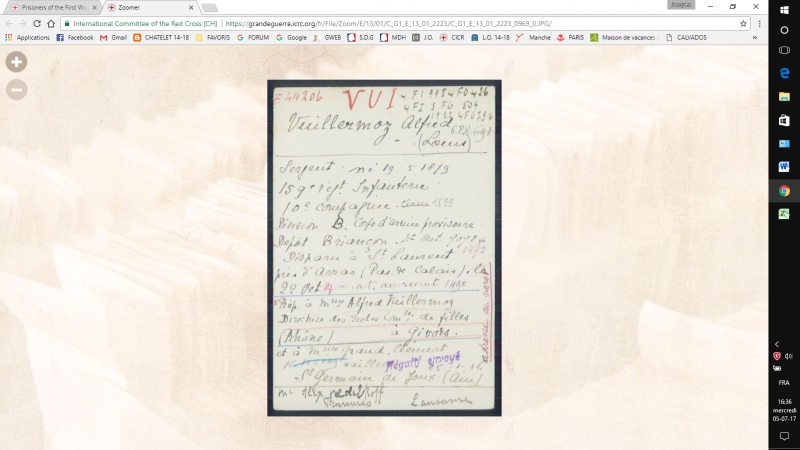 Prisoners of the First Wo
Zoomer
International Committee of the Red Cross [CH]
https://grandeguerre.icrc.org/fr/File/Zoom/E/13/01/C_G1_E_13_01_2223/C_G1_E_13_01_2223_0969_0.JPG/
Applications Facebook Gmail CHATELET 14-18 FAVORIS FORUM Google GWEB S.O.G MDH J.O. CICR L.O. 14-18 Manche PARIS Maison de vacances CALVADOS
E 44206 VUI
Vuillermoz Alfred
(Louis)
Sergent né 19.5.1879
159e régt Infanterie
10e compagnie. Classe 1899
Division B. Corps d'armée provisoire.
Dépôt Briançon.
Disparu à St Laurent
près d'Arras (Pas de Calais), le
22 Oct 14
Rép. à Mme Alfred Vuillermoz
Directrice des Ecoles Comles de filles
(Rhône) à Givors.
et à Mme
Négatif envoyé
St Germain de Joux (Ain)
Lausanne
adressé au
FRA
16:36
mercredi
05-07-17